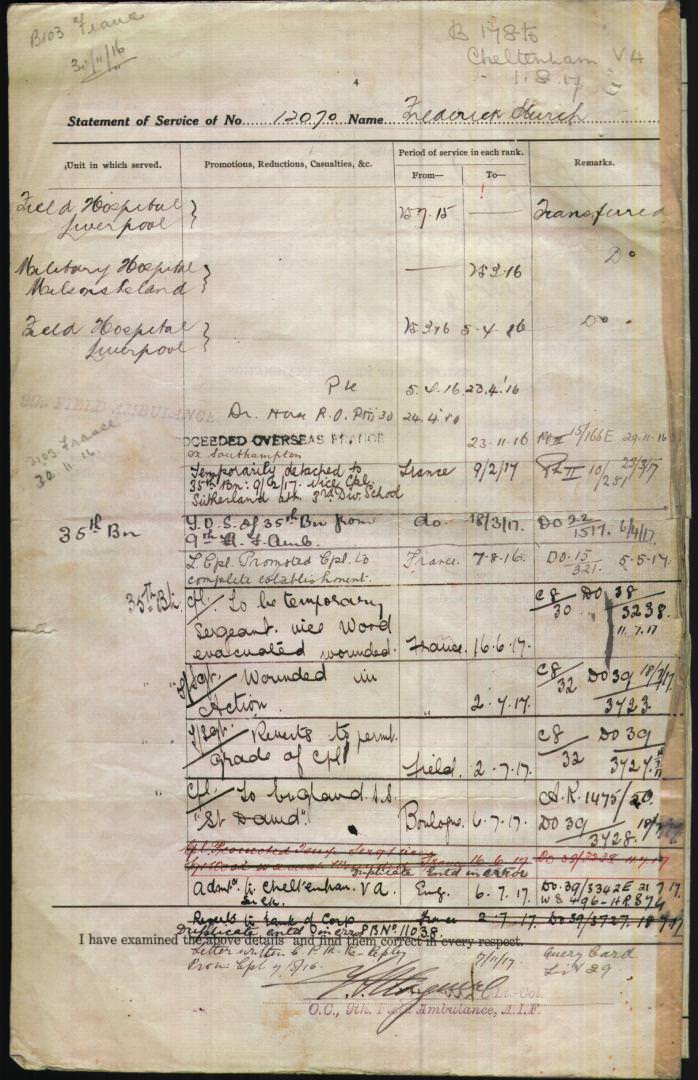 B103 France
30/11/16
B 178
Cheltenham VH
11.8.17
4
Statement of Service of No. 12070 Name Frederick
Unit in which served. Promotions, Reductions, Casualties, &c. Period of service in each rank. Remarks.
From— To—
Field Hospital Liverpool } — Transferred
Military Hospital Milsons Island } — Do
Field Hospital Liverpool } 5.4.16 Do
Pte 5.4.16 23.4.16
FIELD AMBULANCE
Dr. 24.4.
B103 France
30.11.16.
OCEEDED OVERSEAS
ex Southampton 23.11.16 29.11.16
Temporarily detached to France 9/2/17 Pt II 10/251
35th Bn: 9/2/17. vice Cpl.
Sutherland att 3rd Div. School
35th Bn T.O.S. of 35th Bn from do. 18/3/17. DO 22/1517. 6/4/17.
9th A. F. Amb.
L. Cpl. Promoted Cpl. to France. 7-8-16. DO-15/321. 5-5-17.
complete establishment.
35th Bn. Cpl. To be temporary C8/30 DO 38/3238.
Sergeant. vice Wood 11.7.17
evacuated wounded. France. 16.6.17.
" T/Sgt. Wounded in C8/32 DO 39 18/7/17.
Action. " 2.7.17. 3723.
" T/Sgt. Reverts to permt. C8/32 DO 39
grade of Cpl Field. 2.7.17. 3727.
" Cpl. To England. A.K. 1475/20.
"St David". Boulogne. 6.7.17. DO 39/3728. 18/7/17
Cpl. Promoted Temp. Sergt vice
France 16.6.17
Duplicate Entd in error
Admtd. to Cheltenham. V A. Eng. 6.7.17. DO.39/3342E 21 7 17.
Sick. W 8496-HR 874
Reverts to rank of Corp France 2.7.17. DO 39/3727. 18.7.17
Duplicate entd in error PBNo 11038.
I have examined the above details and find them correct in every respect.
Letter 7/11/17 Query Card
Prom Cpl 7/8/16. List 29
Lt.-Col.
O.C., 9th. Field Ambulance, A.I.F.